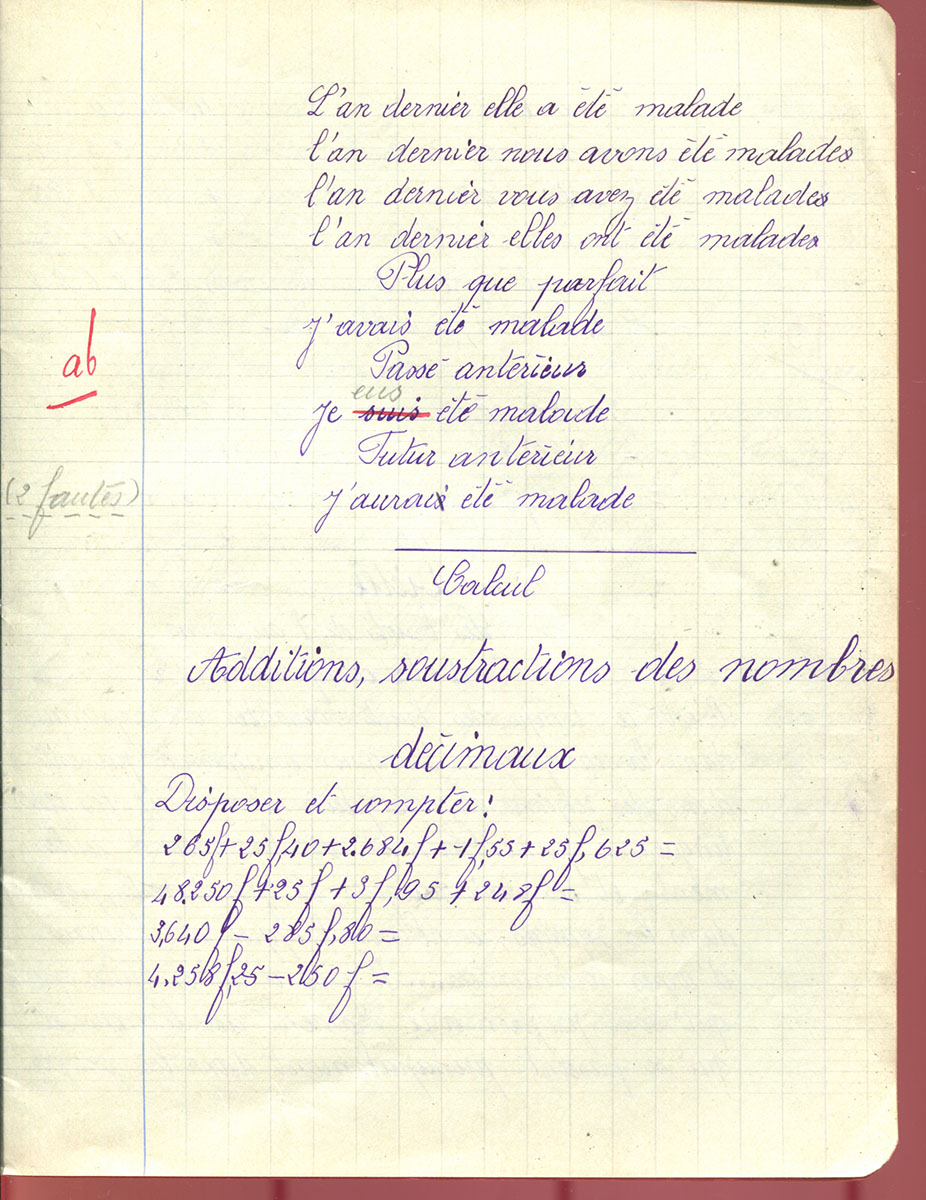 L'an dernier elle a été malade
l'an dernier nous avons été malades
l'an dernier vous avez été malades
l'an dernier elles ont été malades
Plus que parfait
j'avais été malade
ab
Passé antérieur
eus
Je suis été malade
Futur antérieur
(2 fautes)
j'aurais été malade
Calcul
Additions, soustractions des nombres
décimaux
Disposer et compter :
265f + 25f,40 + 2.684f + 1f,55 + 25f,625 =
48.250f + 25f + 3f,95 + 248f =
3,640f - 285f,80 =
4.258f,25 - 250f =